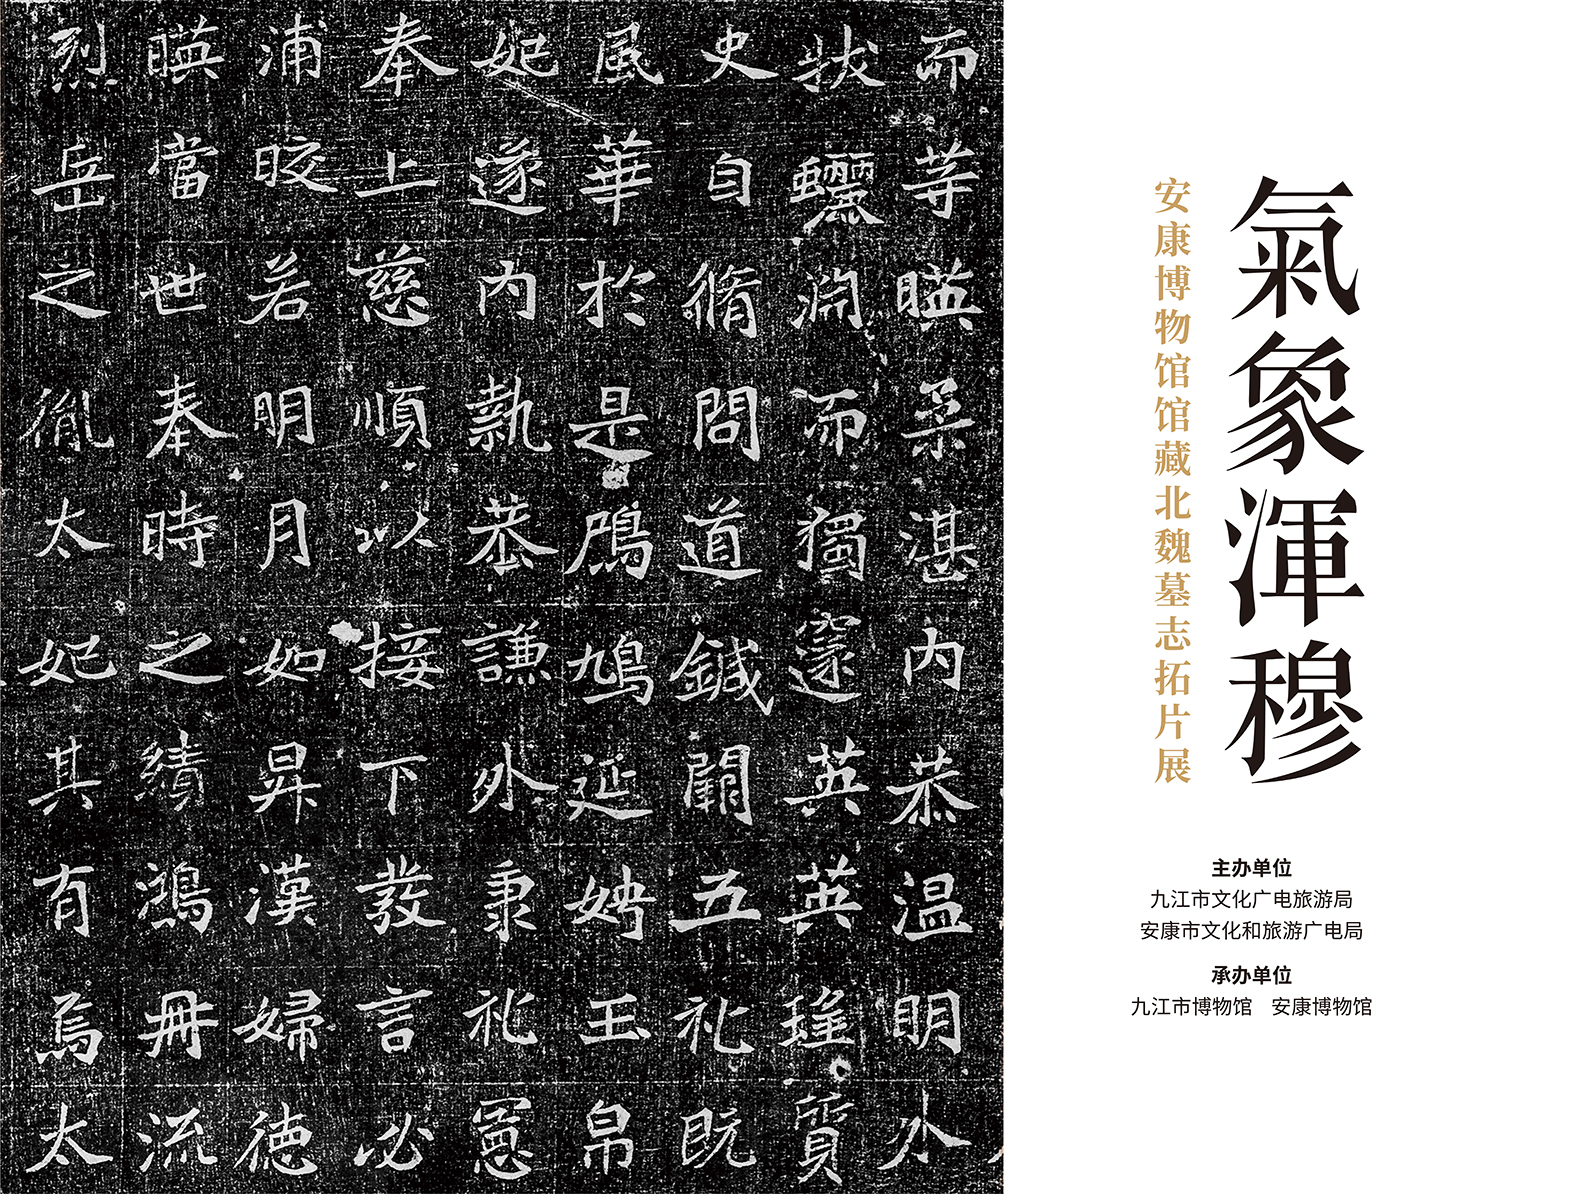 氣象渾穆
安康博物馆馆藏北魏墓志拓片展
主办单位
九江市文化广电旅游局
安康市文化和旅游广电局
承办单位
九江市博物馆 安康博物馆
而等暎柔湛內恭温明水
狀驪淵而獨邃英英瑤質
史自脩問道鍼闕五礼既
風華於是鴈鳩延娉玉帛
妃遂內執恭謙外秉礼憲
奉上慈順以接下發言必
浦晈若明月如昇漢婦德
暎當世奉時之績鴻冊流
烈岳之胤太妃其有焉太